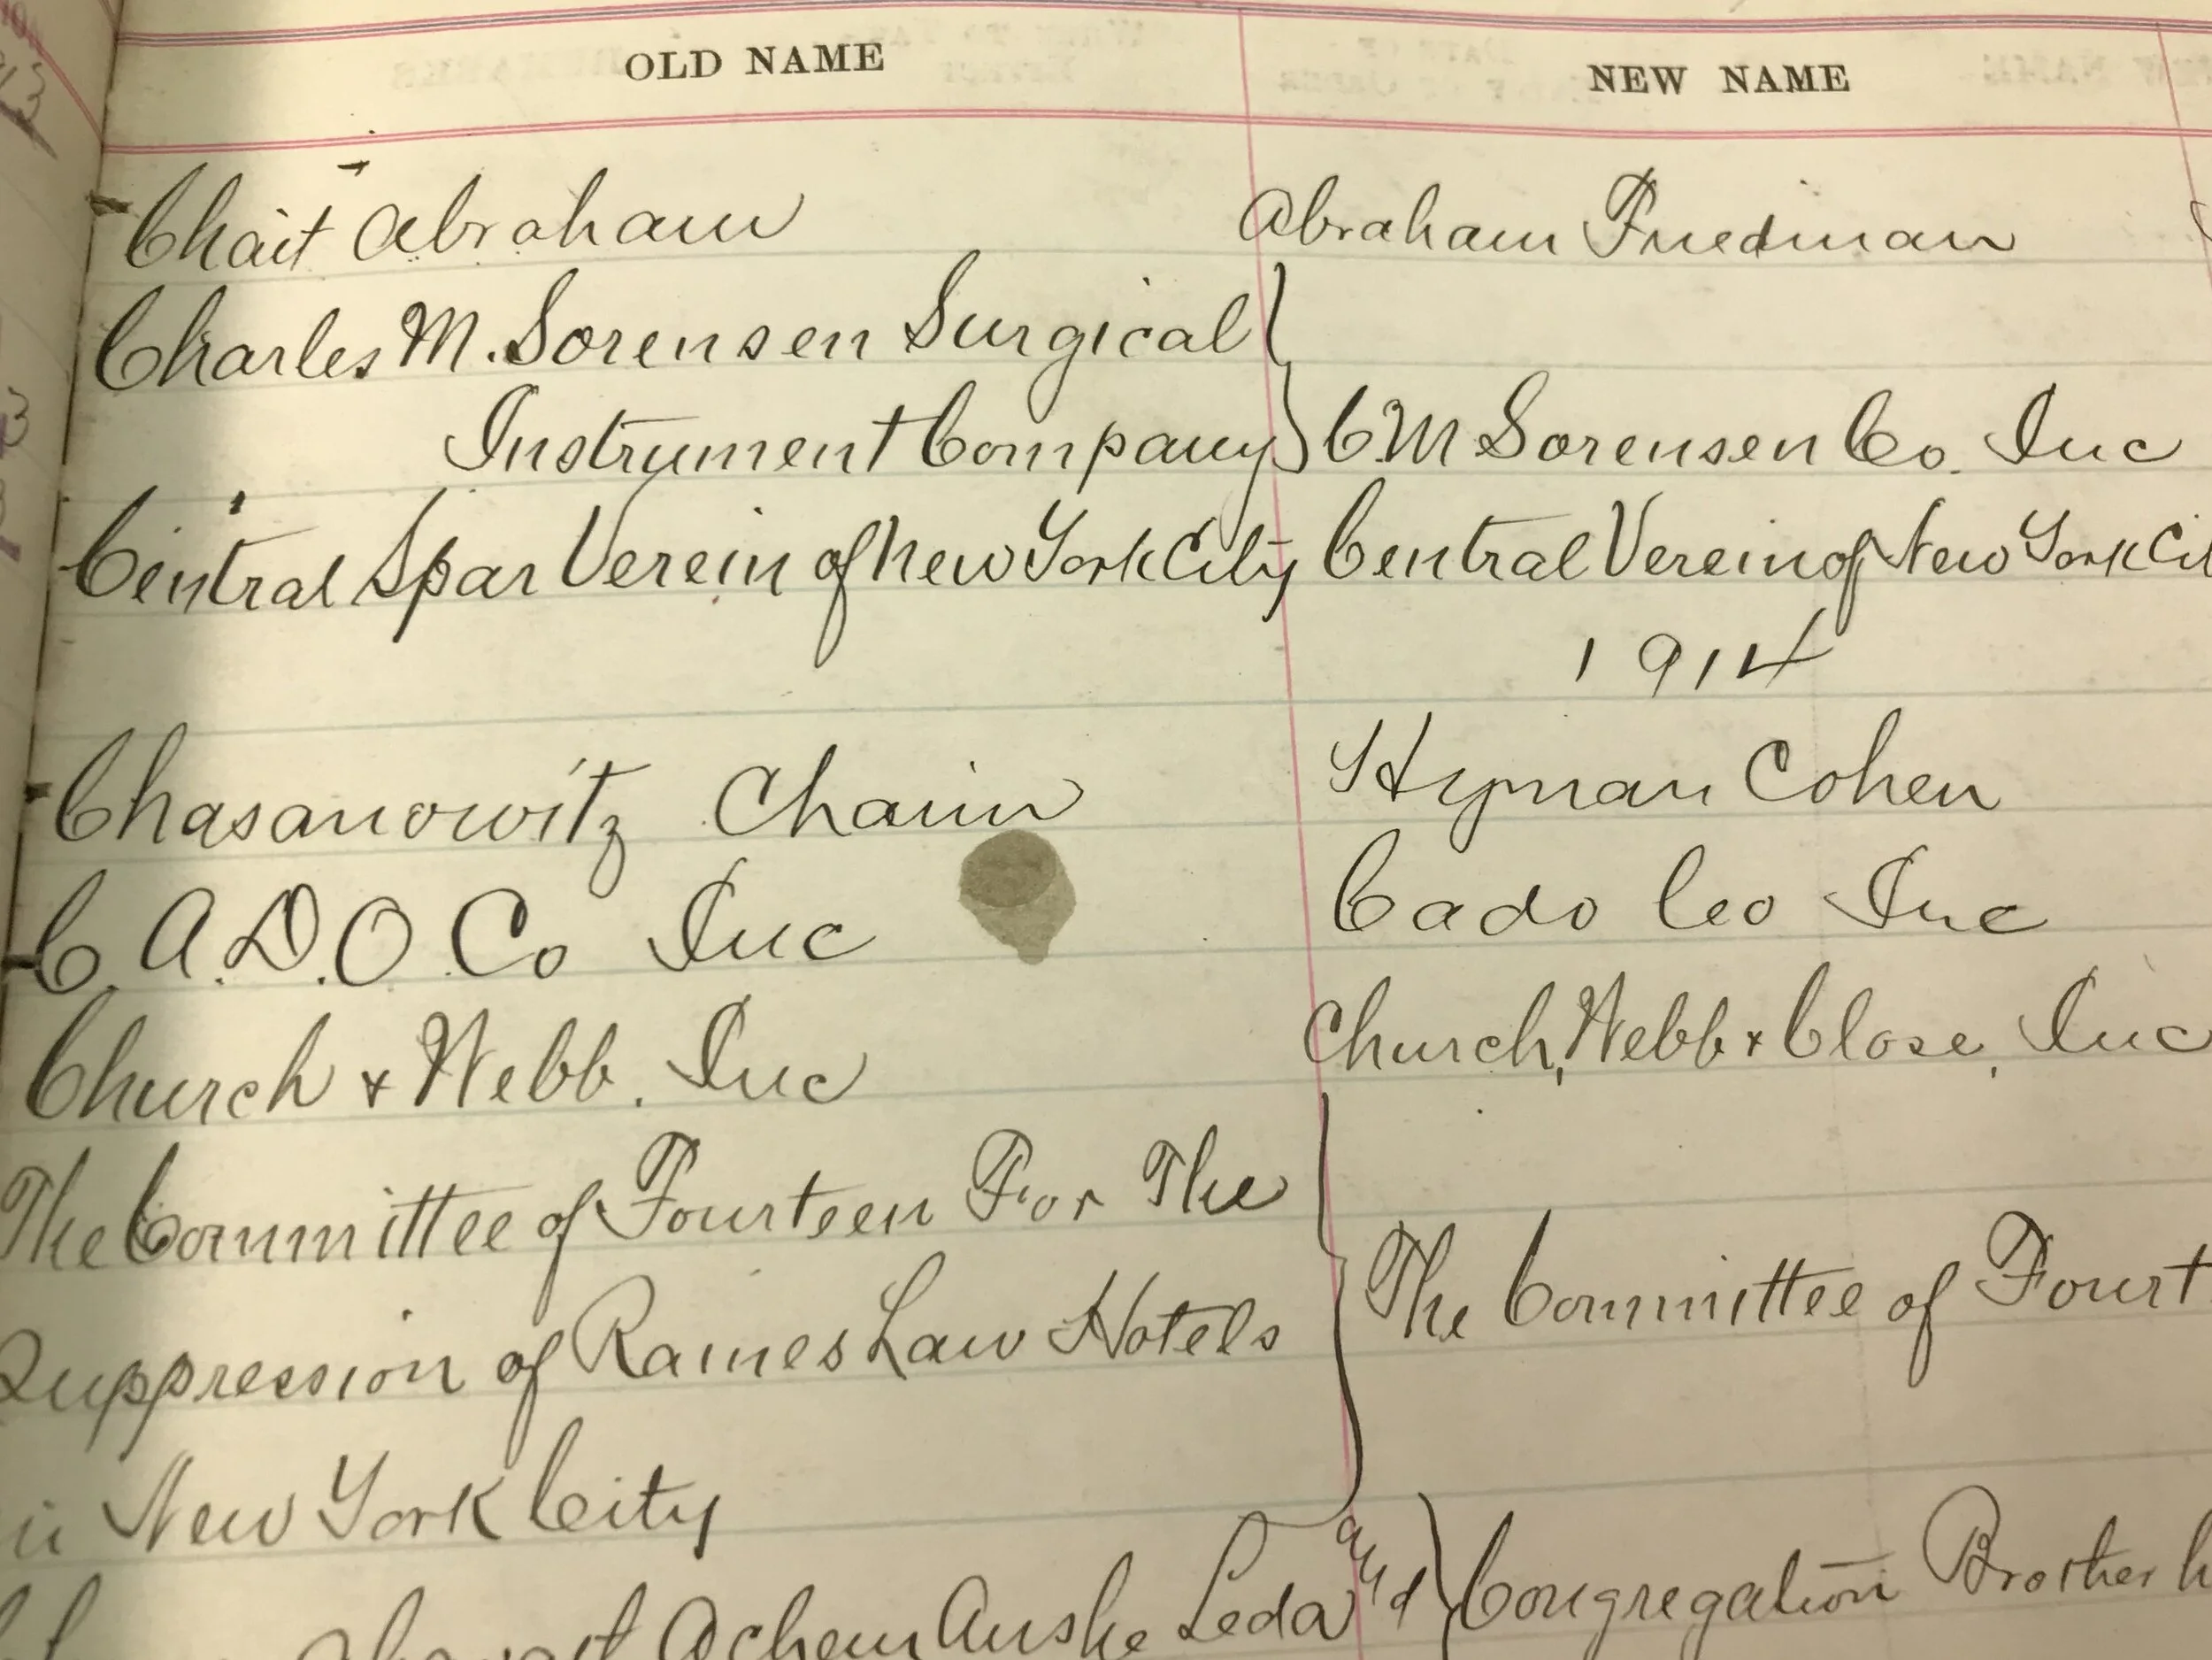 OLD NAME NEW NAME
Chait Abraham Abraham Friedman
Charles M. Sorensen Surgical
Instrument Company C.M Sorensen Co. Inc
Central Spar Verein of New York City Central Verein of New York Cit
1914
Chasanowitz Chaim Hyman Cohen
C. A. D. O. Co Inc Cado Co Inc
Church & Webb. Inc Church, Webb & Close, Inc
The Committee of Fourteen For The
Suppression of Raines Law Hotels The Committee of Fourt
in New York City
Achem Anshe Leda and Congregation Brotherh